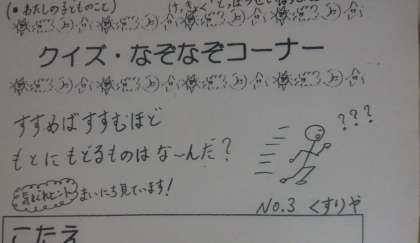 (・わたしの子どものこと)
クイズ・なぞなぞコーナー
すすめばすすむほど
もとにもどるものはな〜んだ?
???
まいにち見ています!
No.3 くすりや
こたえ